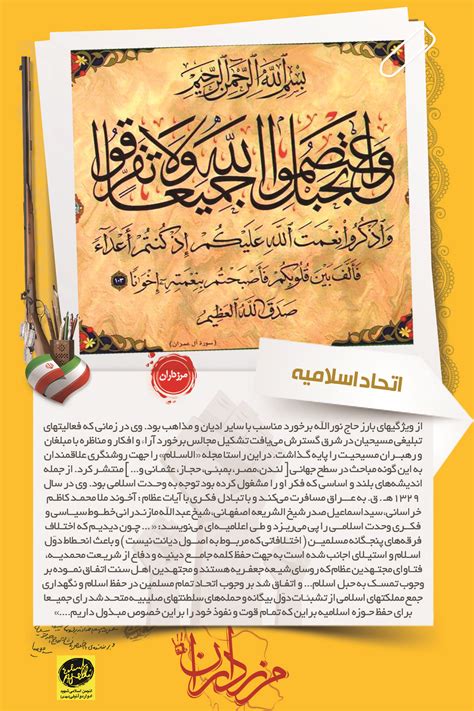 بِسْمِ اللَّهِ الرَّحْمَنِ الرَّحِيمِ
وَاعْتَصِمُوا بِحَبْلِ اللَّهِ جَمِيعًا وَلَا تَفَرَّقُوا
وَاذْكُرُوا نِعْمَتَ اللَّهِ عَلَيْكُمْ إِذْ كُنْتُمْ أَعْدَاءً
فَأَلَّفَ بَيْنَ قُلُوبِكُمْ فَأَصْبَحْتُمْ بِنِعْمَتِهِ إِخْوَانًا ١٠٣
صَدَقَ اللَّهُ الْعَظِيمُ
(سورة آل عمران)
مرزداران
اتحاد اسلامیه
از ویژگیهای بارز حاج نورالله برخورد مناسب با سایر ادیان و مذاهب بود. وی در زمانی که فعالیتهای
تبلیغی مسیحیان در شرق گسترش می‌یافت تشکیل مجالس برخورد آراء و افکار و مناظره با مبلغان
و رهبران مسیحیت را پایه گذاشت. در این راستا مجله «الاسلام» را جهت روشنگری علاقمندان
به این گونه مباحث در سطح جهانی [لندن، مصر، بمبئی، حجاز، عثمانی و...] منتشر کرد. از جمله
اندیشه‌های بلند و اساسی که فکر او را مشغول کرده بود توجه به وحدت اسلامی بود. وی در سال
۱۳۲۹ هـ . ق. به عراق مسافرت می‌کند و با تبادل فکری با آیات عظام: آخوند ملا محمد کاظم
خراسانی، سید اسماعیل صدر شیخ الشریعه اصفهانی، شیخ عبدالله مازندرانی خطوط سیاسی و
فکری وحدت اسلامی را پی می‌ریزد و طی اعلامیه‌ای می‌نویسند: «... چون دیدیم که اختلاف
فرقه‌های پنجگانه مسلمین (اختلافاتی که مربوط به اصول دیانت نیست) و باعث انحطاط دول
اسلام و استیلای اجانب شده است به جهت حفظ کلمه جامع دینیه و دفاع از شریعت محمدیه،
فتاوای مجتهدین عظام که روسای شیعه جعفریه هستند و مجتهدین اهل سنت اتفاق نموده بر
وجوب تمسک به حبل اسلام... و اتفاق شد بر وجوب اتحاد تمام مسلمین در حفظ اسلام و نگهداری
جمع مملکتهای اسلامی از تشبثات دول بیگانه و حمله‌های سلطنتهای صلیبیه متحد شد رای جمیعا
برای حفظ حوزه اسلامیه بر این که تمام قوت و نفوذ خود را بر این خصوص مبذول داریم....»
مرزداران